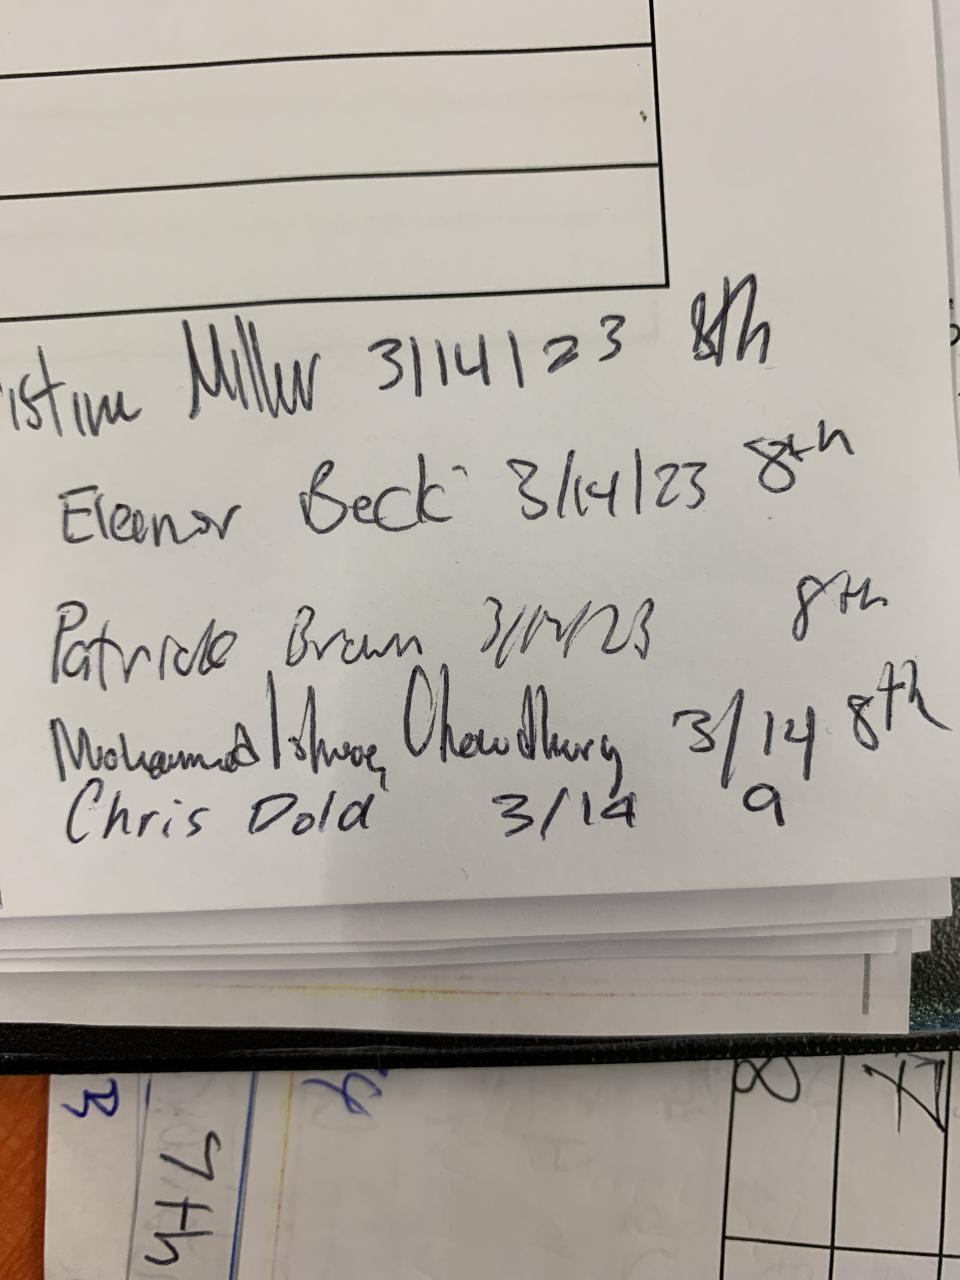 istine Miller 3/14/23 8th
Eleanor Beck 3/14/23 8th
Patrick Brown 3/14/23 8th
Mohammed Chowdhury 3/14 8th
Chris Dold 3/14 9
3
7th
8
7